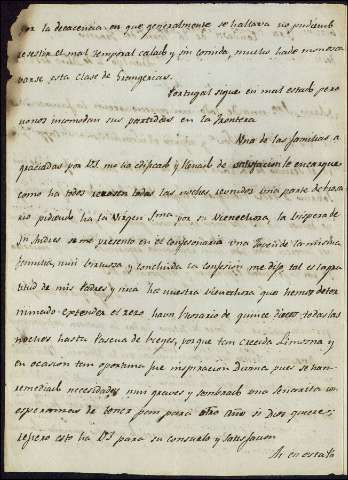 por la decadencia en que generalmente se hallava no pudiendo
resestir el mal temporal calado y sin comida, mucho hade
varse esta clase de Grangerias.
Portugal sigue en mal estado pero
no nos incomodan sus partidas en la frontera
Una de las familias a
graciadas por VI. me ha edificado y llenado de satisfacion le encargue
como ha todos todas las noches, reunidos una parte de rosa
rio pidiendo ha la Virgen Sma por su Vienechora, la vispera de
Sn Andres se me presento en el Confesonario una Joven de la misma
familia, mui birtuosa y concluida la Confesion me dijo, tal es la gra
titud de mis Padres y mia ha nuestra vienechora que hemos deter
minado extender el rezo ha un Rosario de quince dieces, todas las
noches hasta Pascua de Reyes, porque tan Crecida Limosna y
en ocasion tan oportuna fue inspiracion Divina pues se han
remediado necesidades mui graves y sembrado una
esperanmas de tener pan para otro año si Dios quiere;
refiero esto ha VI para su consuelo y satisfacion